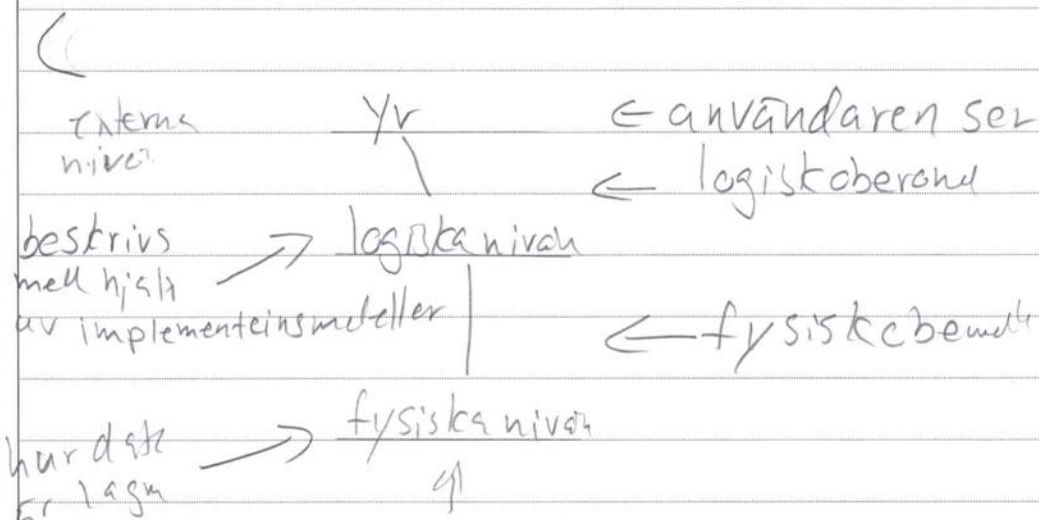 externa
nivån
yr
← användaren ser
← logiskoberoend
beskrivs
med hjälp
av implementeinsmeteller
→ logiska nivån
← fysiskobe
hur data
är lagra
→ fysiska nivån